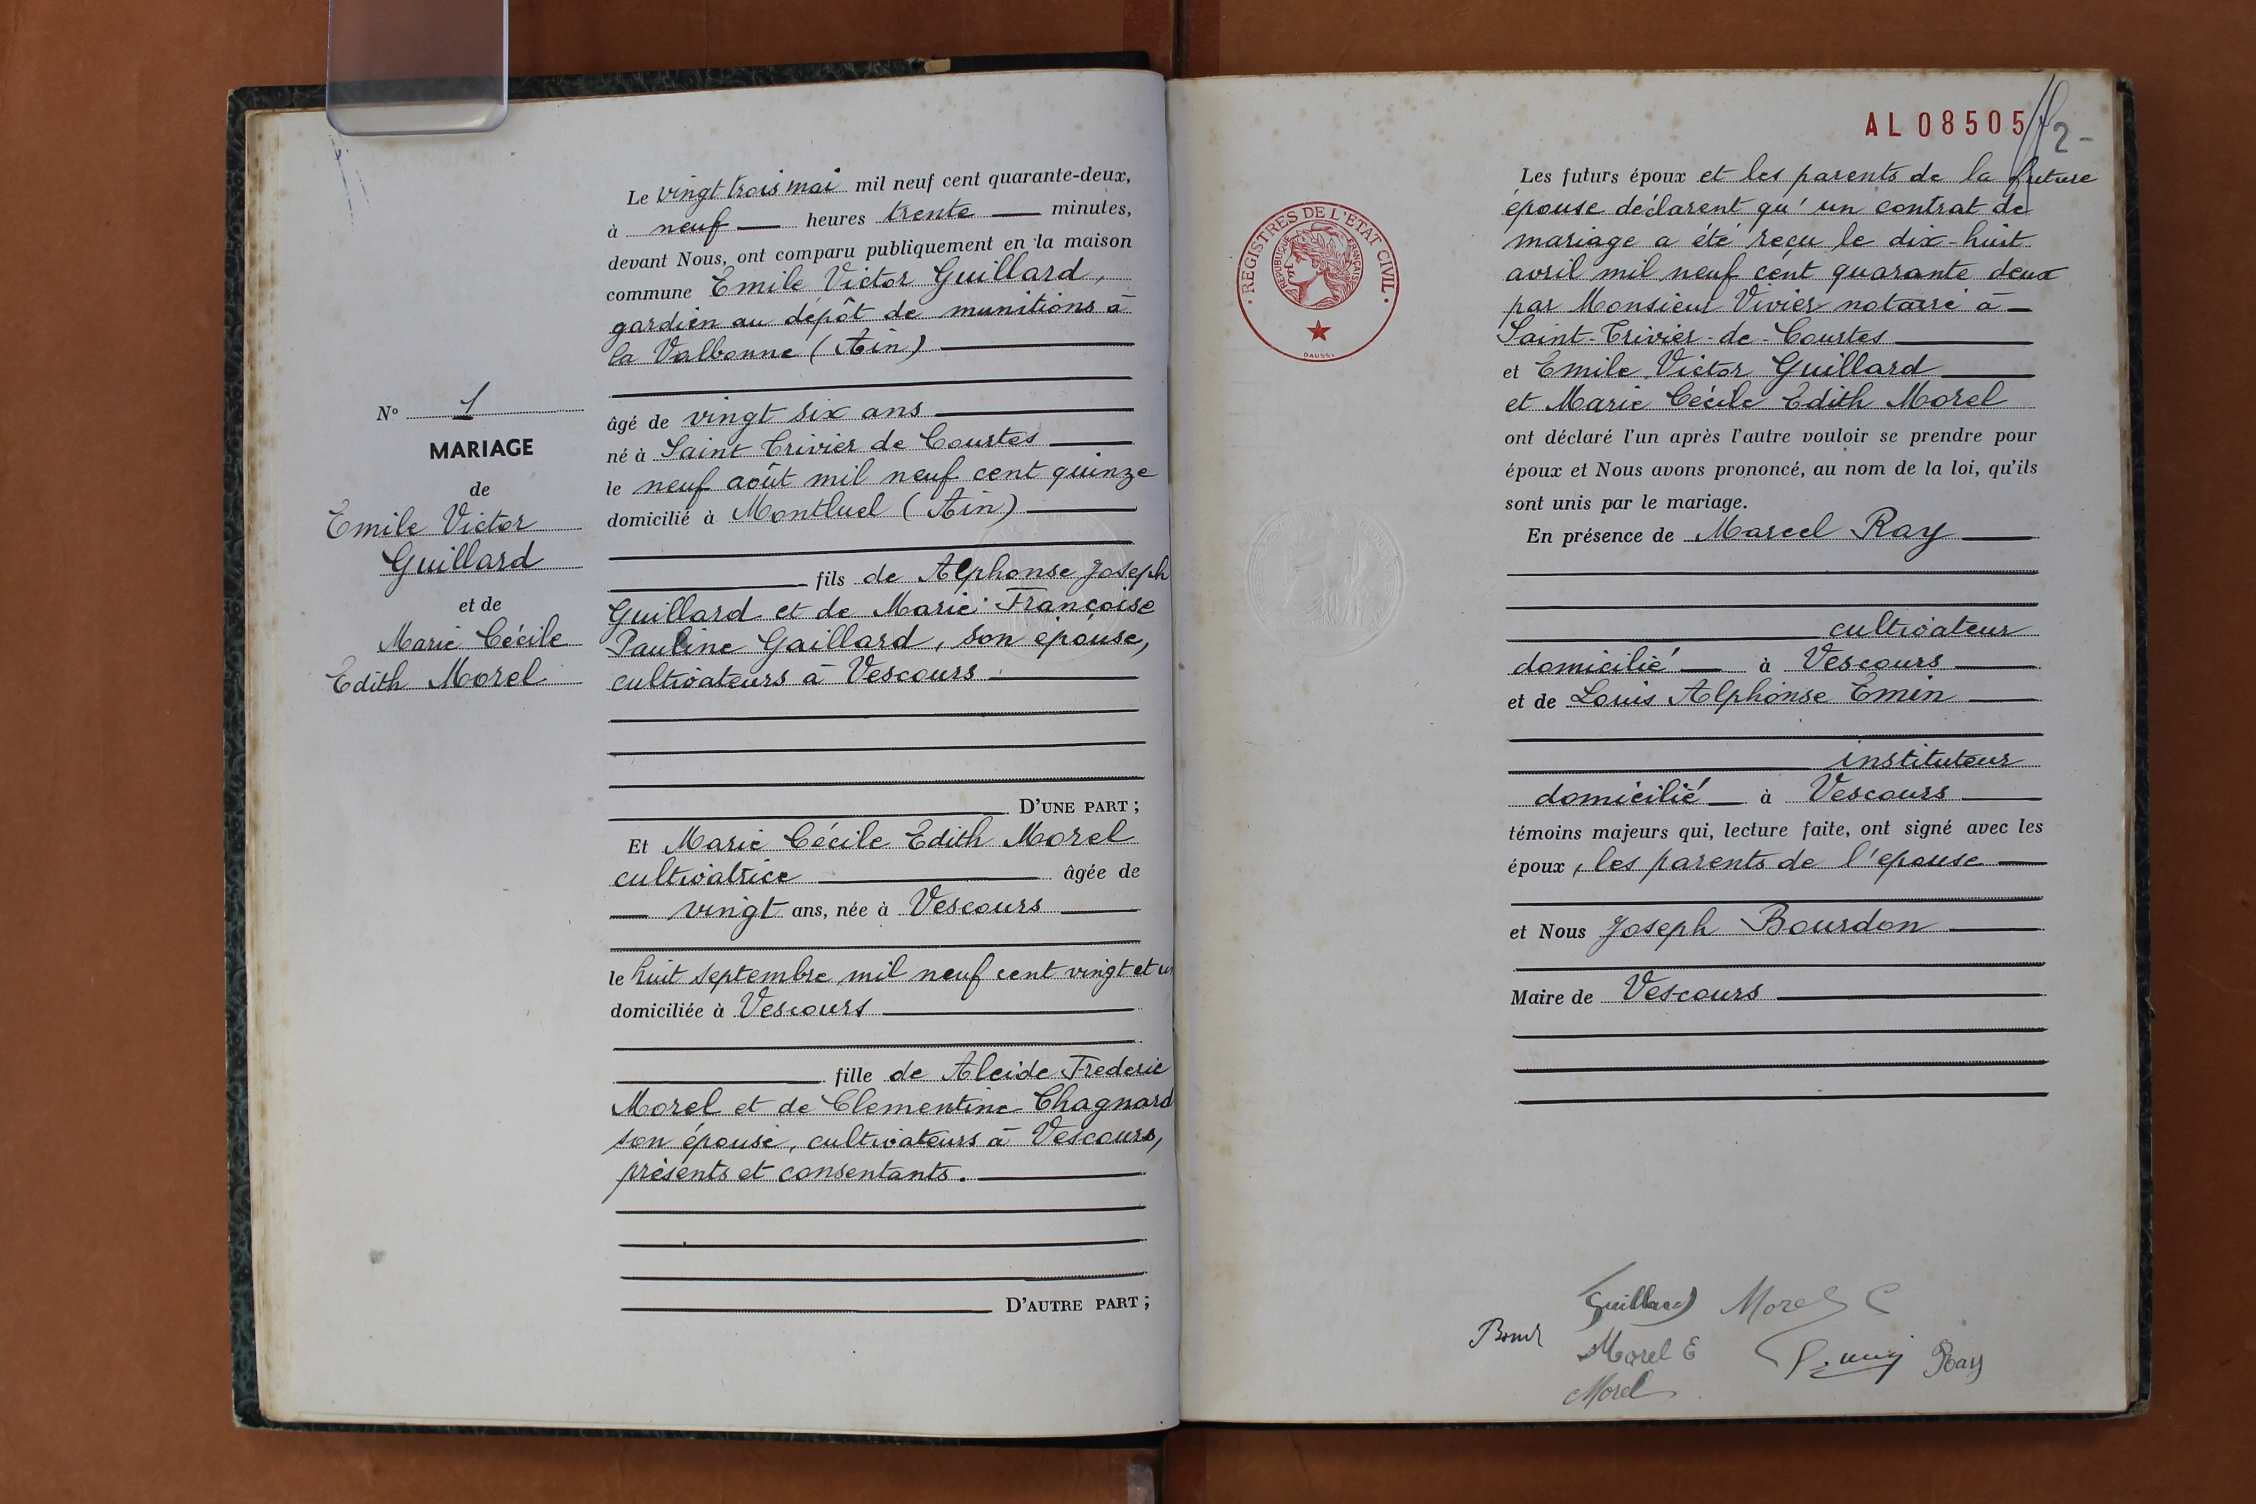 Le vingt trois mai mil neuf cent quarante-deux,
à neuf heures trente minutes,
devant Nous, ont comparu publiquement en la maison
commune Emile Victor Guillard,
gardien au dépôt de munitions à
la Valbonne (Ain)
âgé de vingt six ans
né à Saint Trivier de Courtes
le neuf août mil neuf cent quinze
domicilié à Montluel (Ain)
fils de Alphonse Joseph
Guillard et de Marie Françoise
Pauline Gaillard, son épouse,
cultivateurs à Vescours
D'UNE PART ;
Et Marie Cécile Edith Morel
cultivatrice âgée de
vingt ans, née à Vescours
le huit septembre mil neuf cent vingt et un
domiciliée à Vescours
fille de Alcide Frederic
Morel et de Clementine Chagnard
son épouse, cultivateurs à Vescours,
présents et consentants.
D'AUTRE PART ;
N° 1
MARIAGE
de
Emile Victor
Guillard
et de
Marie Cécile
Edith Morel
AL 08505
2 -
REGISTRES DE L'ETAT CIVIL
REPUBLIQUE FRANÇAISE
DAUSSY
Les futurs époux et les parents de la future
épouse déclarent qu'un contrat de
mariage a été reçu le dix-huit
avril mil neuf cent quarante deux
par Monsieur Vivier notaire à
Saint-Trivier-de-Courtes
et Emile Victor Guillard
et Marie Cécile Edith Morel
ont déclaré l'un après l'autre vouloir se prendre pour
époux et Nous avons prononcé, au nom de la loi, qu'ils
sont unis par le mariage.
En présence de Marcel Ray
cultivateur
domicilié à Vescours
et de Louis Alphonse Emin
instituteur
domicilié à Vescours
témoins majeurs qui, lecture faite, ont signé avec les
époux, les parents de l'epouse
et Nous Joseph Bourdon
Maire de Vescours
Guillard Morel C
Morel E Emin Ray
Morel